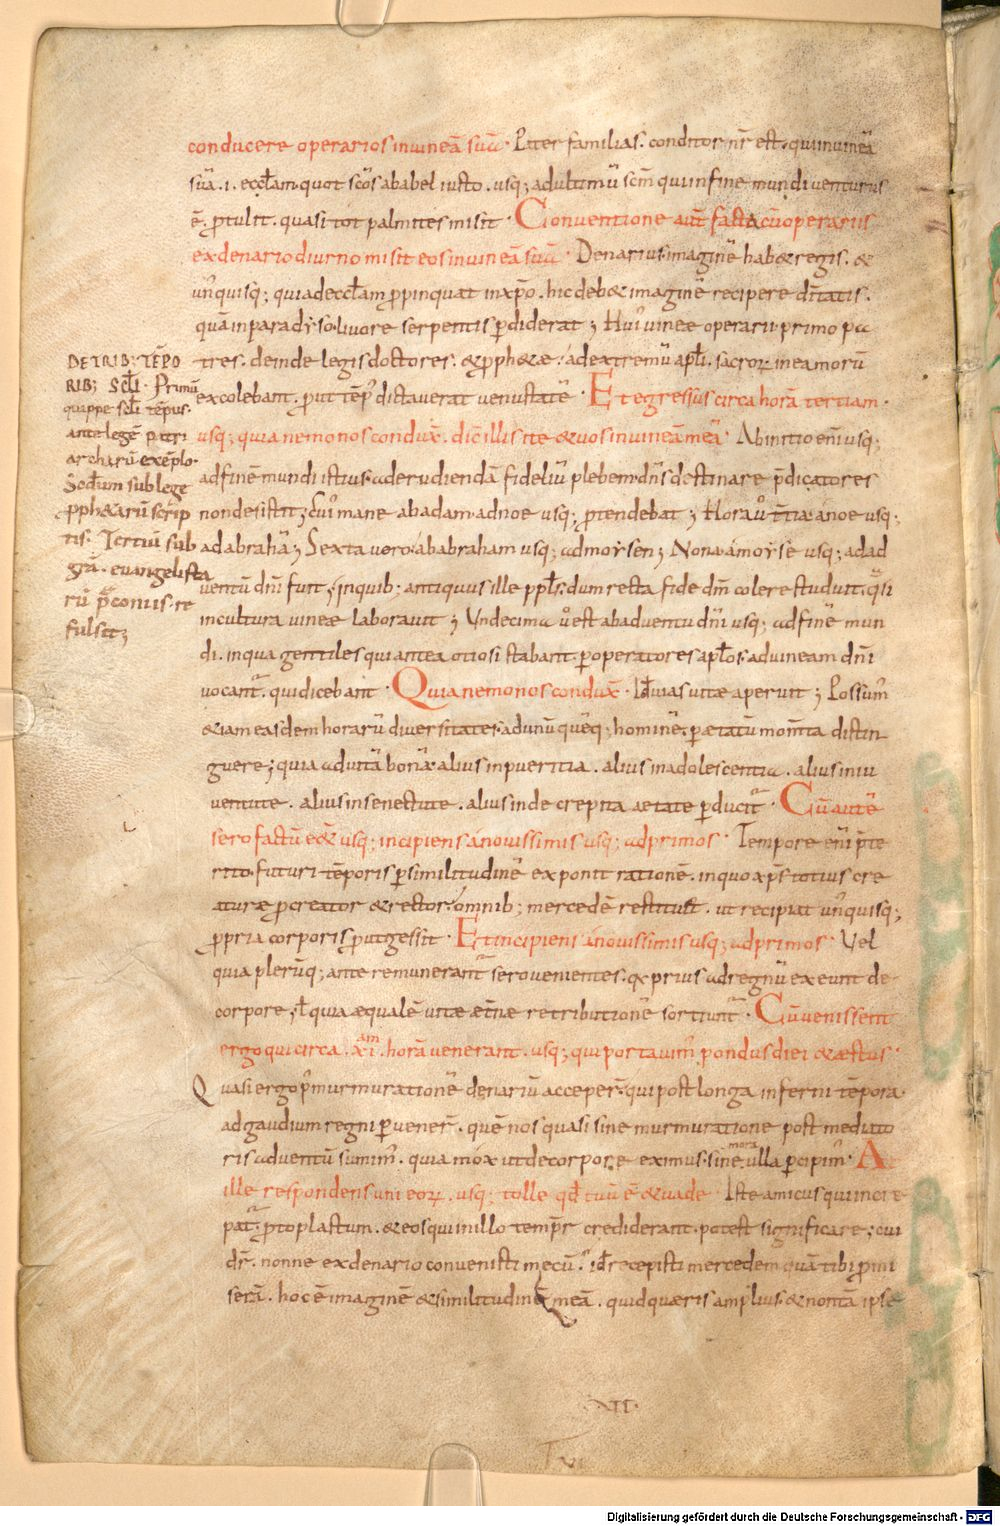 conducere operarios inuineā suā. Pater familias. conditor nr̄ est. qui inuineā
suā .i. eccłam. quot sc̄os ab abel iusto. usq; ad ultimū sc̄m qui infine mundi uenturus
ē. ꝓtulit. quasi tot palmites misit. Conuentione aut̄ facta cū operariis
ex denario diurno misit eos inuineā suā. Denarius imaginē hab& regis. &
un̄quisq; qui ad eccłam ꝓpinquat inxp̄o. hic deb& imaginē recipere diuītatis.
quam inparadyso liuore serpentis ꝑdiderat; Hui' uineae operarii primo pa
tres. deinde legis doctores. & ꝓph&ae. ad extremū apłi. sacroꝝ in ea morū
excolebant. ꝓut tēp' dictauerat uenustatē. Et egressus circa horā tertiam.
usq; quia nemo nos condux̄. dic̄ illis ite & uos inuineā meā. Ab initio eni usq;
ad finē mundi istius ad erudiendā fideliū plebem dn̄s destinare p̄dicatores
non desistit; Cui' mane ab adam ad noe usq; ꝓtendebat; Hora u° tt̄ia a noe usq;
ad abrahā; Sexta uero ab abraham usq; ad moysen; Nona a moyse usq; ad ad
uentū dn̄i fuit; Inquib; antiquus ille ppl̄s. dum recta fide dm̄ colere studuit. q̄si
incultura uineae laborauit; Undecima u° est ab aduentu dn̄i usq; ad finē mun
di. inqua gentiles qui antea otiosi stabant. ꝑ operatores apłos ad uineam dn̄i
uocant̄. qui dicebant. Quia nemo nos condux̄. Id uias uitae aperuit; Possum̄
&iam easdem horarū diuersitates ad unū quēq; hominē. ꝑ aetatū mom̄ta distin
guere; quia ad uitā bonā alius inpueritia. alius inadolescentia. alius iniu
uentute. alius insenectute. alius inde crepita aetate ꝑducit̄. Cū autē
sero factū ēē& usq; incipiens a nouissimis usq; ad primos. Tempore eni p̄te
rito. futuri tēporis ꝑ similitudinē exponit rationē. inquo xp̄s totius cre
aturae ꝓcreator & rector. omnib; mercedē restituet. ut recipiat un̄quisq;
ꝓpria corporis ꝓut gessit. Et incipiens a nouissimis usq; ad primos. Vel
quia plerūq; ante remunerant̄ sero uenientes. q̄ prius ad regnū exeunt de
corpore. ł quia aequalē uitae aet̄nae retributionē sortiunt̄. Cū uenissent
ergo qui circa .xi.am horā uenerant. usq; qui portauim̄ pondus diei & aestus.
Quasi ergo p̄ murmurationē denariū acceper̄. qui post longa inferni tēpora
ad gaudium regni ꝑuener̄. quē nos quasi sine murmuratione post mediato
ris aduentū sumim̄. quia mox ut decorpore eximus. sine mora ulla ꝑcipim̄. At
ille respondens uni eoꝝ. usq; tolle qd̄ tuū ē & uade. Iste amicus qui incre
pat̄. ꝓtoplastum. & eos qui in illo temp̄r crediderant. potest significare; cui
dr̄. nonne ex denario conuenisti mecū. id recepisti mercedem quā tibi ꝓmi
serā. hoc ē imaginē & similitudinē meā. quid quaeris amplius & non tā ipse
DE TRIB; TĒPO
RIB; SCŁI. Primū
quippe scłi tēpus.
ante legē patri
archarū exēplo.
Scđum sub lege
ꝓph&arū scrip
tis. Tertiū sub
grā. euangelista
rū p̄coniis re
fulsit;
.XII.
Digitalisierung gefördert durch die Deutsche Forschungsgemeinschaft - DFG